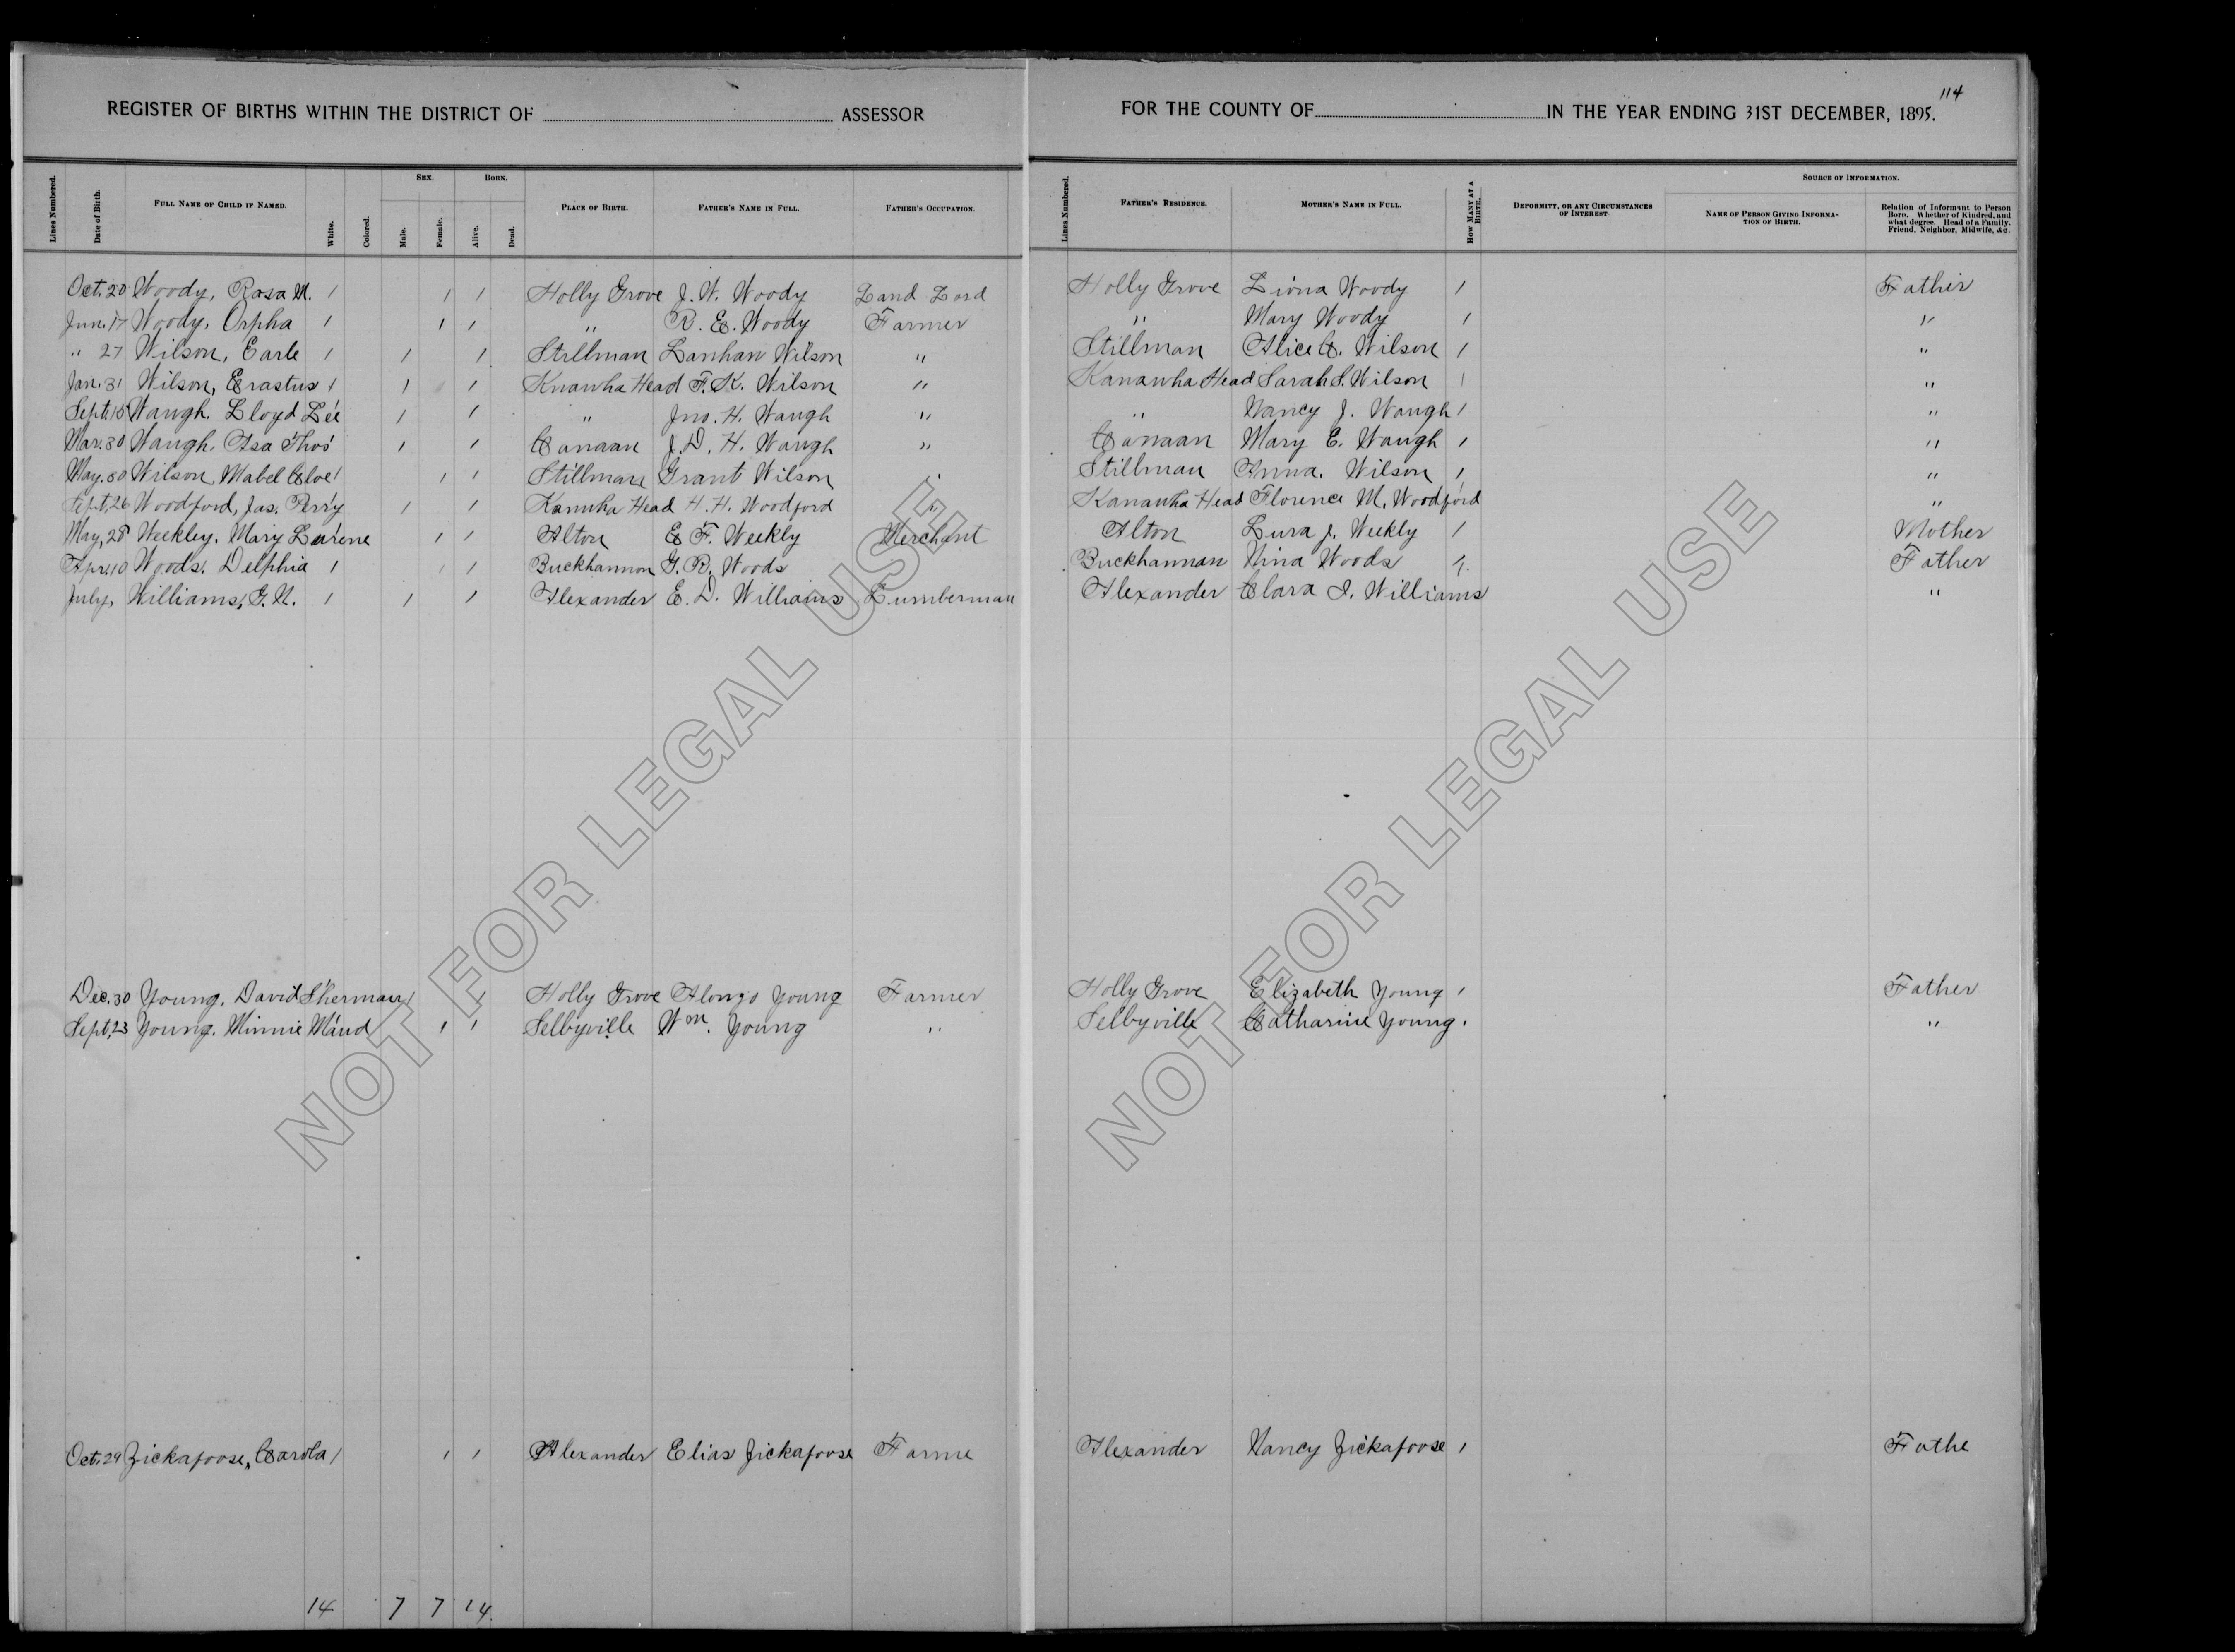 114
REGISTER OF BIRTHS WITHIN THE DISTRICT OF ASSESSOR FOR THE COUNTY OF IN THE YEAR ENDING 31ST DECEMBER, 1895.
Lines Numbered. Date of Birth. FULL NAME OF CHILD IF NAMED. White. Colored. SEX. Male. Female. BORN. Alive. Dead. PLACE OF BIRTH. FATHER'S NAME IN FULL. FATHER'S OCCUPATION. Lines Numbered. FATHER'S RESIDENCE. MOTHER'S NAME IN FULL. HOW MANY AT A BIRTH. DEFORMITY, OR ANY CIRCUMSTANCES OF INTEREST. SOURCE OF INFORMATION. NAME OF PERSON GIVING INFORMATION OF BIRTH. Relation of Informant to Person Born. Whether of Kindred, and what degree. Head of a Family. Friend, Neighbor, Midwife, &c.
Oct. 20 Woody, Rosa M. 1 1 1 Holly Grove J. W. Woody Land Lord Holly Grove Liona Woody 1 Father
Jun. 17 Woody, Orpha 1 1 1 " R. E. Woody Farmer " Mary Woody 1 "
" 27 Wilson, Earle 1 1 1 Stillman Lanhan Wilson " Stillman Alice C. Wilson 1 "
Jan. 31 Wilson, Erastus 1 1 1 Knawha Head F. K. Wilson " Kanawha Head Sarah S. Wilson 1 "
Sept. 15 Waugh. Lloyd Lee 1 1 " Jno. H. Waugh " " Nancy J. Waugh 1 "
Mar. 30 Waugh. Asa Thos 1 1 1 Canaan J. D. H. Waugh " Canaan Mary E. Waugh 1 "
May. 30 Wilson, Mabel Cloe 1 1 1 Stillman Grant Wilson " Stillman Anna. Wilson 1 "
Sept. 26 Woodford, Jas. Perry 1 1 Kanwha Head H. H. Woodford " Kanawha Head Florence M. Woodford "
May, 28 Weekley. Mary Lurene 1 1 Alton E F. Weekly Merchant Alton Lura J. Weekly 1 Mother
Apr. 10 Woods. Delphia 1 1 1 Buckhannon G. R. Woods Buckhannan Nina Woods 1. Father
July, Williams, G. N. 1 1 1 Alexander E. D. Williams Lumberman Alexander Clara I. Williams "
Dec. 30 Young, David Sherman 1 1 Holly Grove Alonzo Young Farmer Holly Grove Elizabeth Young 1 Father
Sept. 23 Young. Minnie Maud 1 1 Selbyville Wm. Young " Selbyville Catharine Young. "
Oct. 29 Zickafoose, Carola 1 1 1 Alexander Elias Zickafoose Farme Alexander Nancy Zickafoose 1 Fathe
14 7 7 14.
NOT FOR LEGAL USE
NOT FOR LEGAL USE